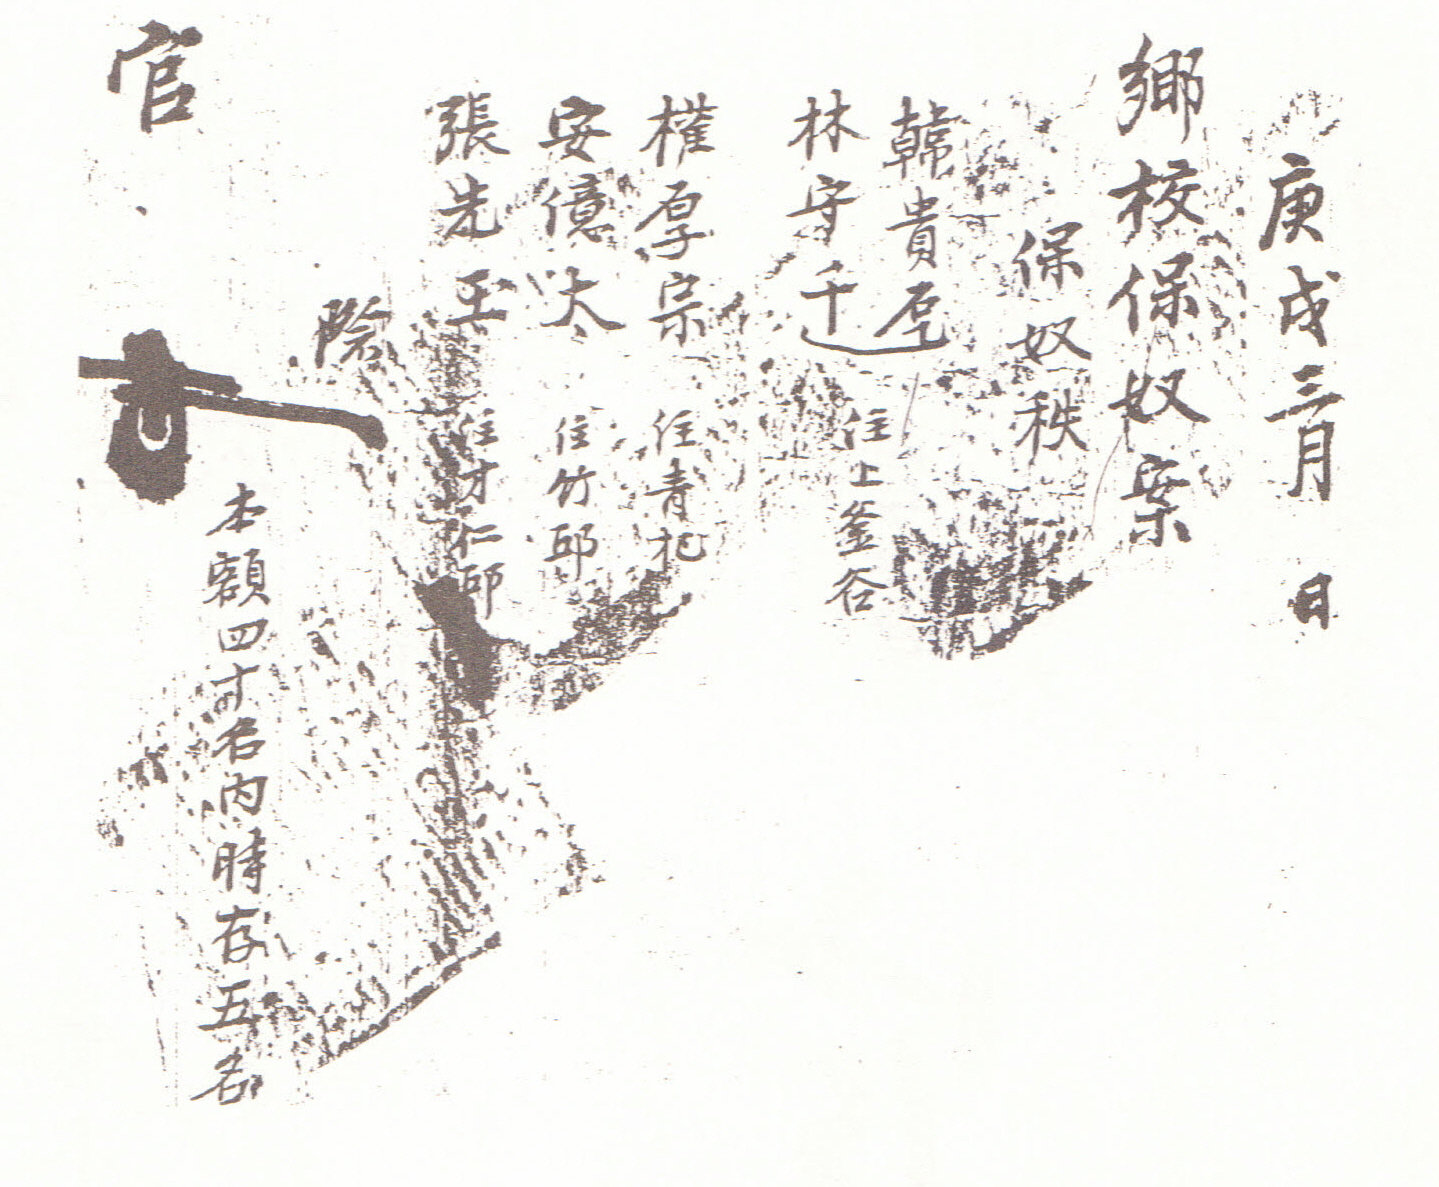 庚戌三月 日
鄕校保奴案
保奴秩
韓貴
林守千 住上釜谷
權厚宗 住靑杞
安億大 住竹邱
張先玉 住才仁邱
際
本額四十名內時存五名
官